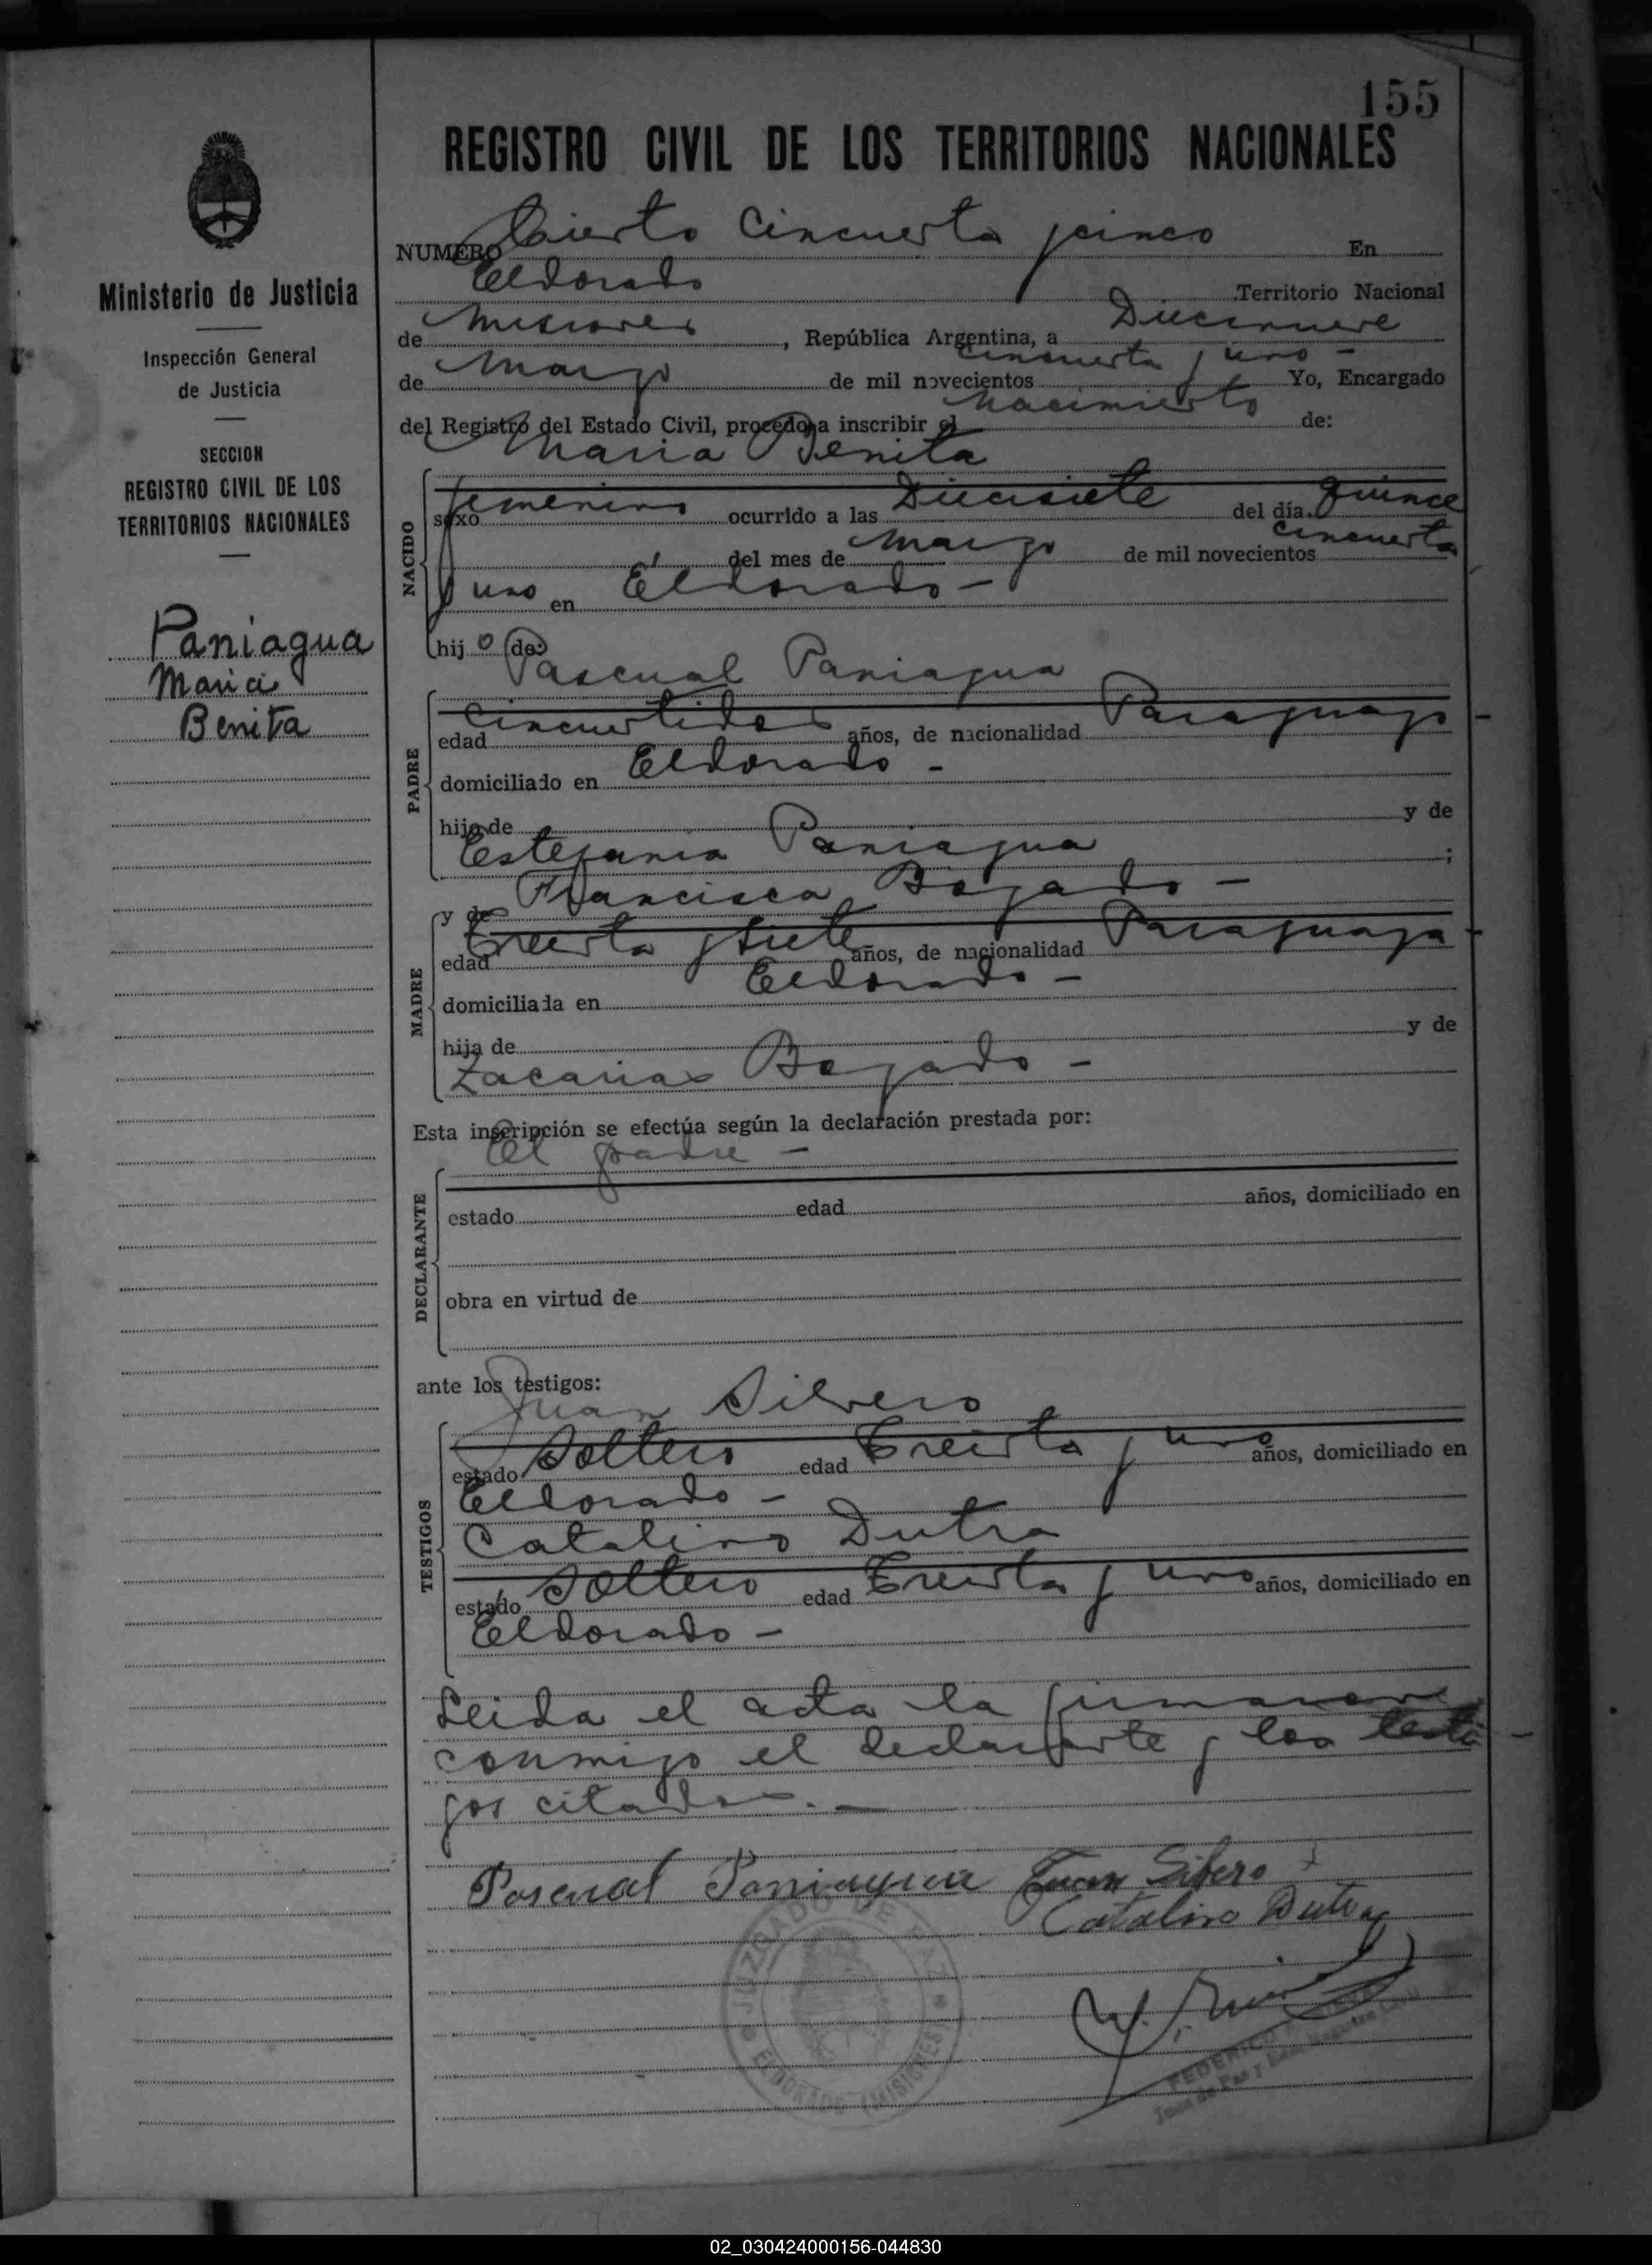 155
REGISTRO CIVIL DE LOS TERRITORIOS NACIONALES
Ministerio de Justicia
Inspección General
de Justicia
SECCION
REGISTRO CIVIL DE LOS
TERRITORIOS NACIONALES
Paniagua
Maria
Benita
NUMERO Ciento Cincuenta y cinco En
Eldorado Territorio Nacional
de Misiones, República Argentina, a Diecinueve
de Marzo de mil novecientos cincuenta y uno - Yo, Encargado
del Registro del Estado Civil, procedo a inscribir el Nacimiento de:
Maria Benita
NACIDO
sexo femenino ocurrido a las Diecisiete del día quince
del mes de Marzo de mil novecientos cincuenta
y uno en Eldorado -
hijo de:
Pascual Paniagua
PADRE
edad cincuentidos años, de nacionalidad Paraguayo -
domiciliado en Eldorado -
hijo de y de
Estefania Paniagua ;
y de Francisca Bogado -
MADRE
edad Treinta y siete años, de nacionalidad Paraguaya -
domiciliada en Eldorado -
hija de y de
Zacarias Bogado -
Esta inscripción se efectúa según la declaración prestada por:
El padre -
DECLARANTE
estado edad años, domiciliado en
obra en virtud de
ante los testigos:
Juan Silvero
TESTIGOS
estado Soltero edad Treinta y uno años, domiciliado en
Eldorado -
Catalino Dutra
estado Soltero edad Treinta y uno años, domiciliado en
Eldorado -
Leida el acta la firmaron
conmigo el declarante y los testi
gos citados. -
Pascual Paniagua Juan Silvero
Catalino Dutra
JUZGADO DE PAZ
ELDORADO (MISIONES)
FEDERICO
Juez de Paz y Enc. Registro Civil
02_030424000156-044830